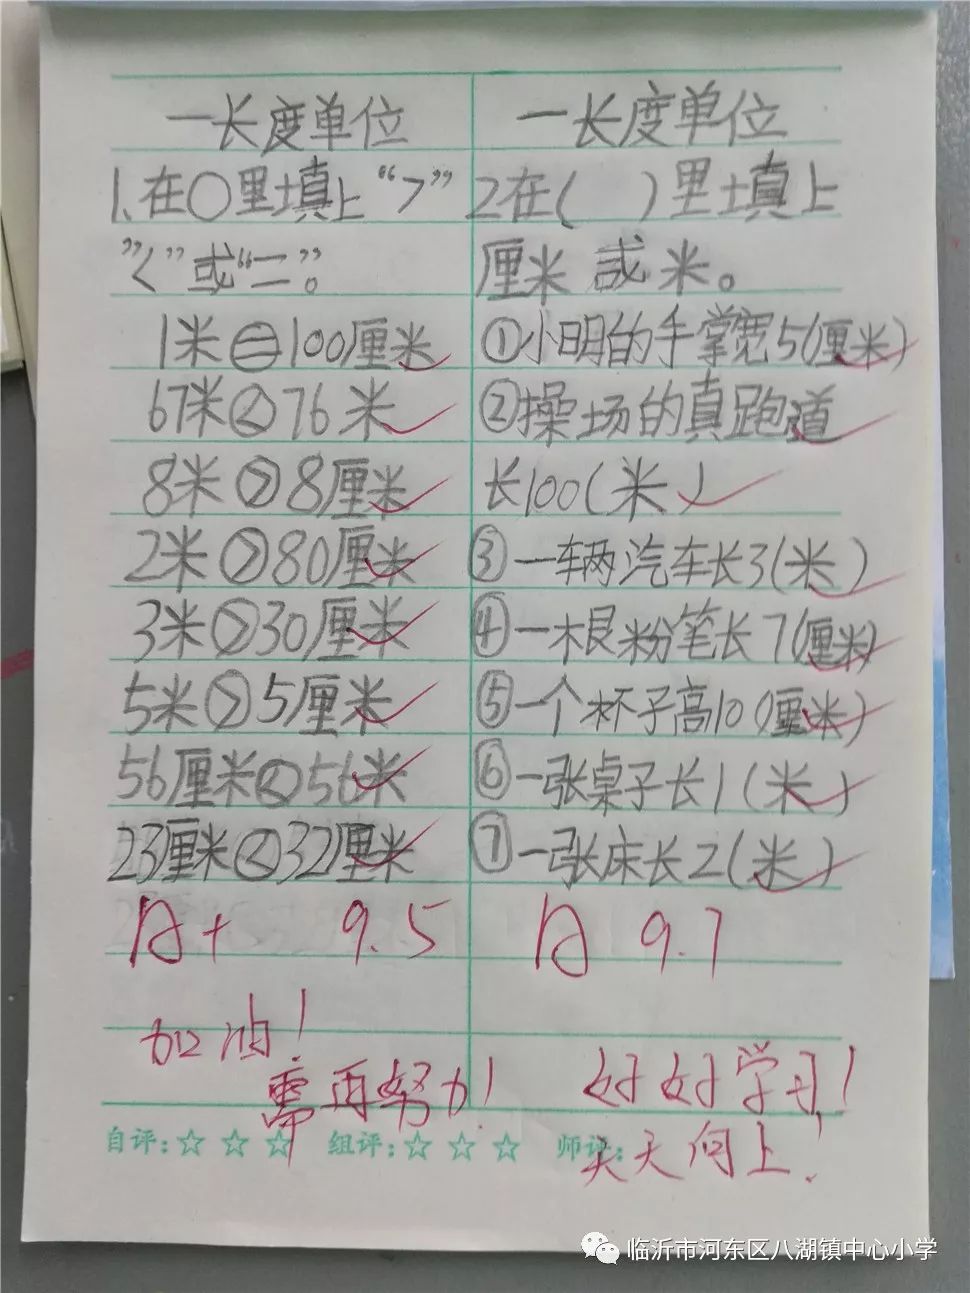 一长度单位
1、在〇里填上“>”
”<”或“=”。
1米=100厘米
67米<76米
8米>8厘米
2米>80厘米
3米>30厘米
5米>5厘米
56厘米<56米
23厘米<32厘米
A+ 9.5
加油!
需再努力!
一长度单位
2在( )里填上
厘米或米。
①小明的手掌宽5(厘米)
②操场的真跑道
长100(米)
③一辆汽车长3(米)
④一根粉笔长7(厘米)
⑤一个杯子高10(厘米)
⑥一张桌子长1(米)
⑦一张床长2(米)
A 9.7
好好学习!
天天向上!
自评:☆ ☆ ☆ 组评:☆ ☆ ☆ 师评:
临沂市河东区八湖镇中心小学